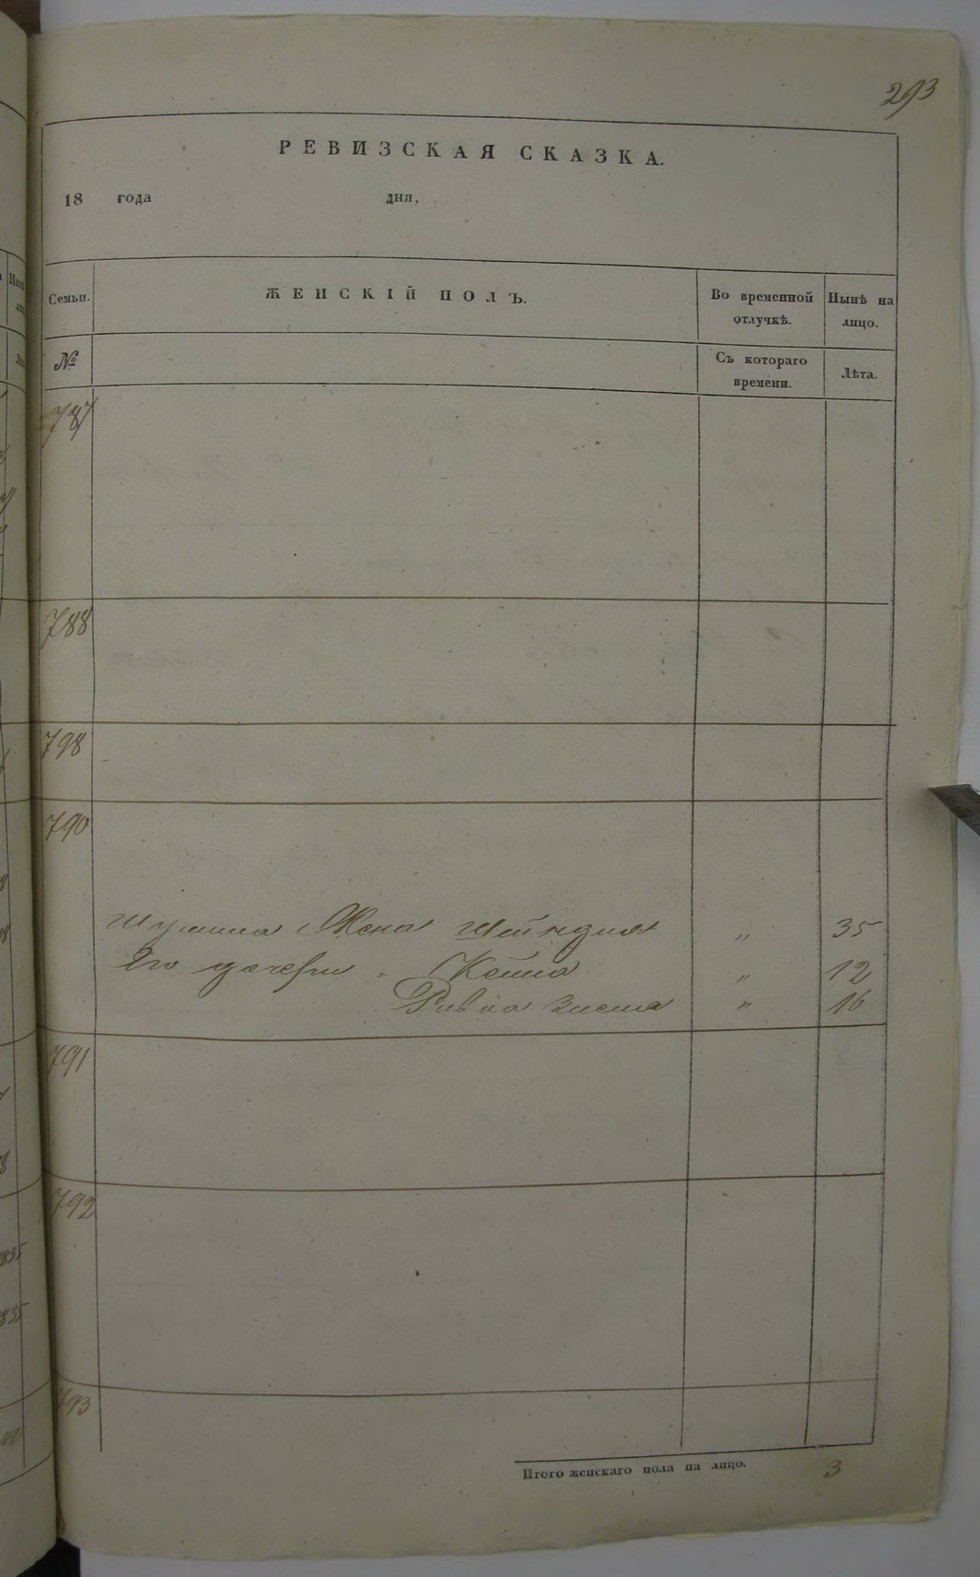 293
РЕВИЗСКАЯ СКАЗКА.
18 года дня,
Семьи. ЖЕНСКІЙ ПОЛЪ. Во временной отлучкѣ. Нынѣ на лицо.
№ Съ котораго времени. Лѣта.
787
788
798
790
Жена Шейндля „ 35
Его дочери „ 12
Ривка „ 16
791
792
793
Итого женскаго пола на лицо. 3